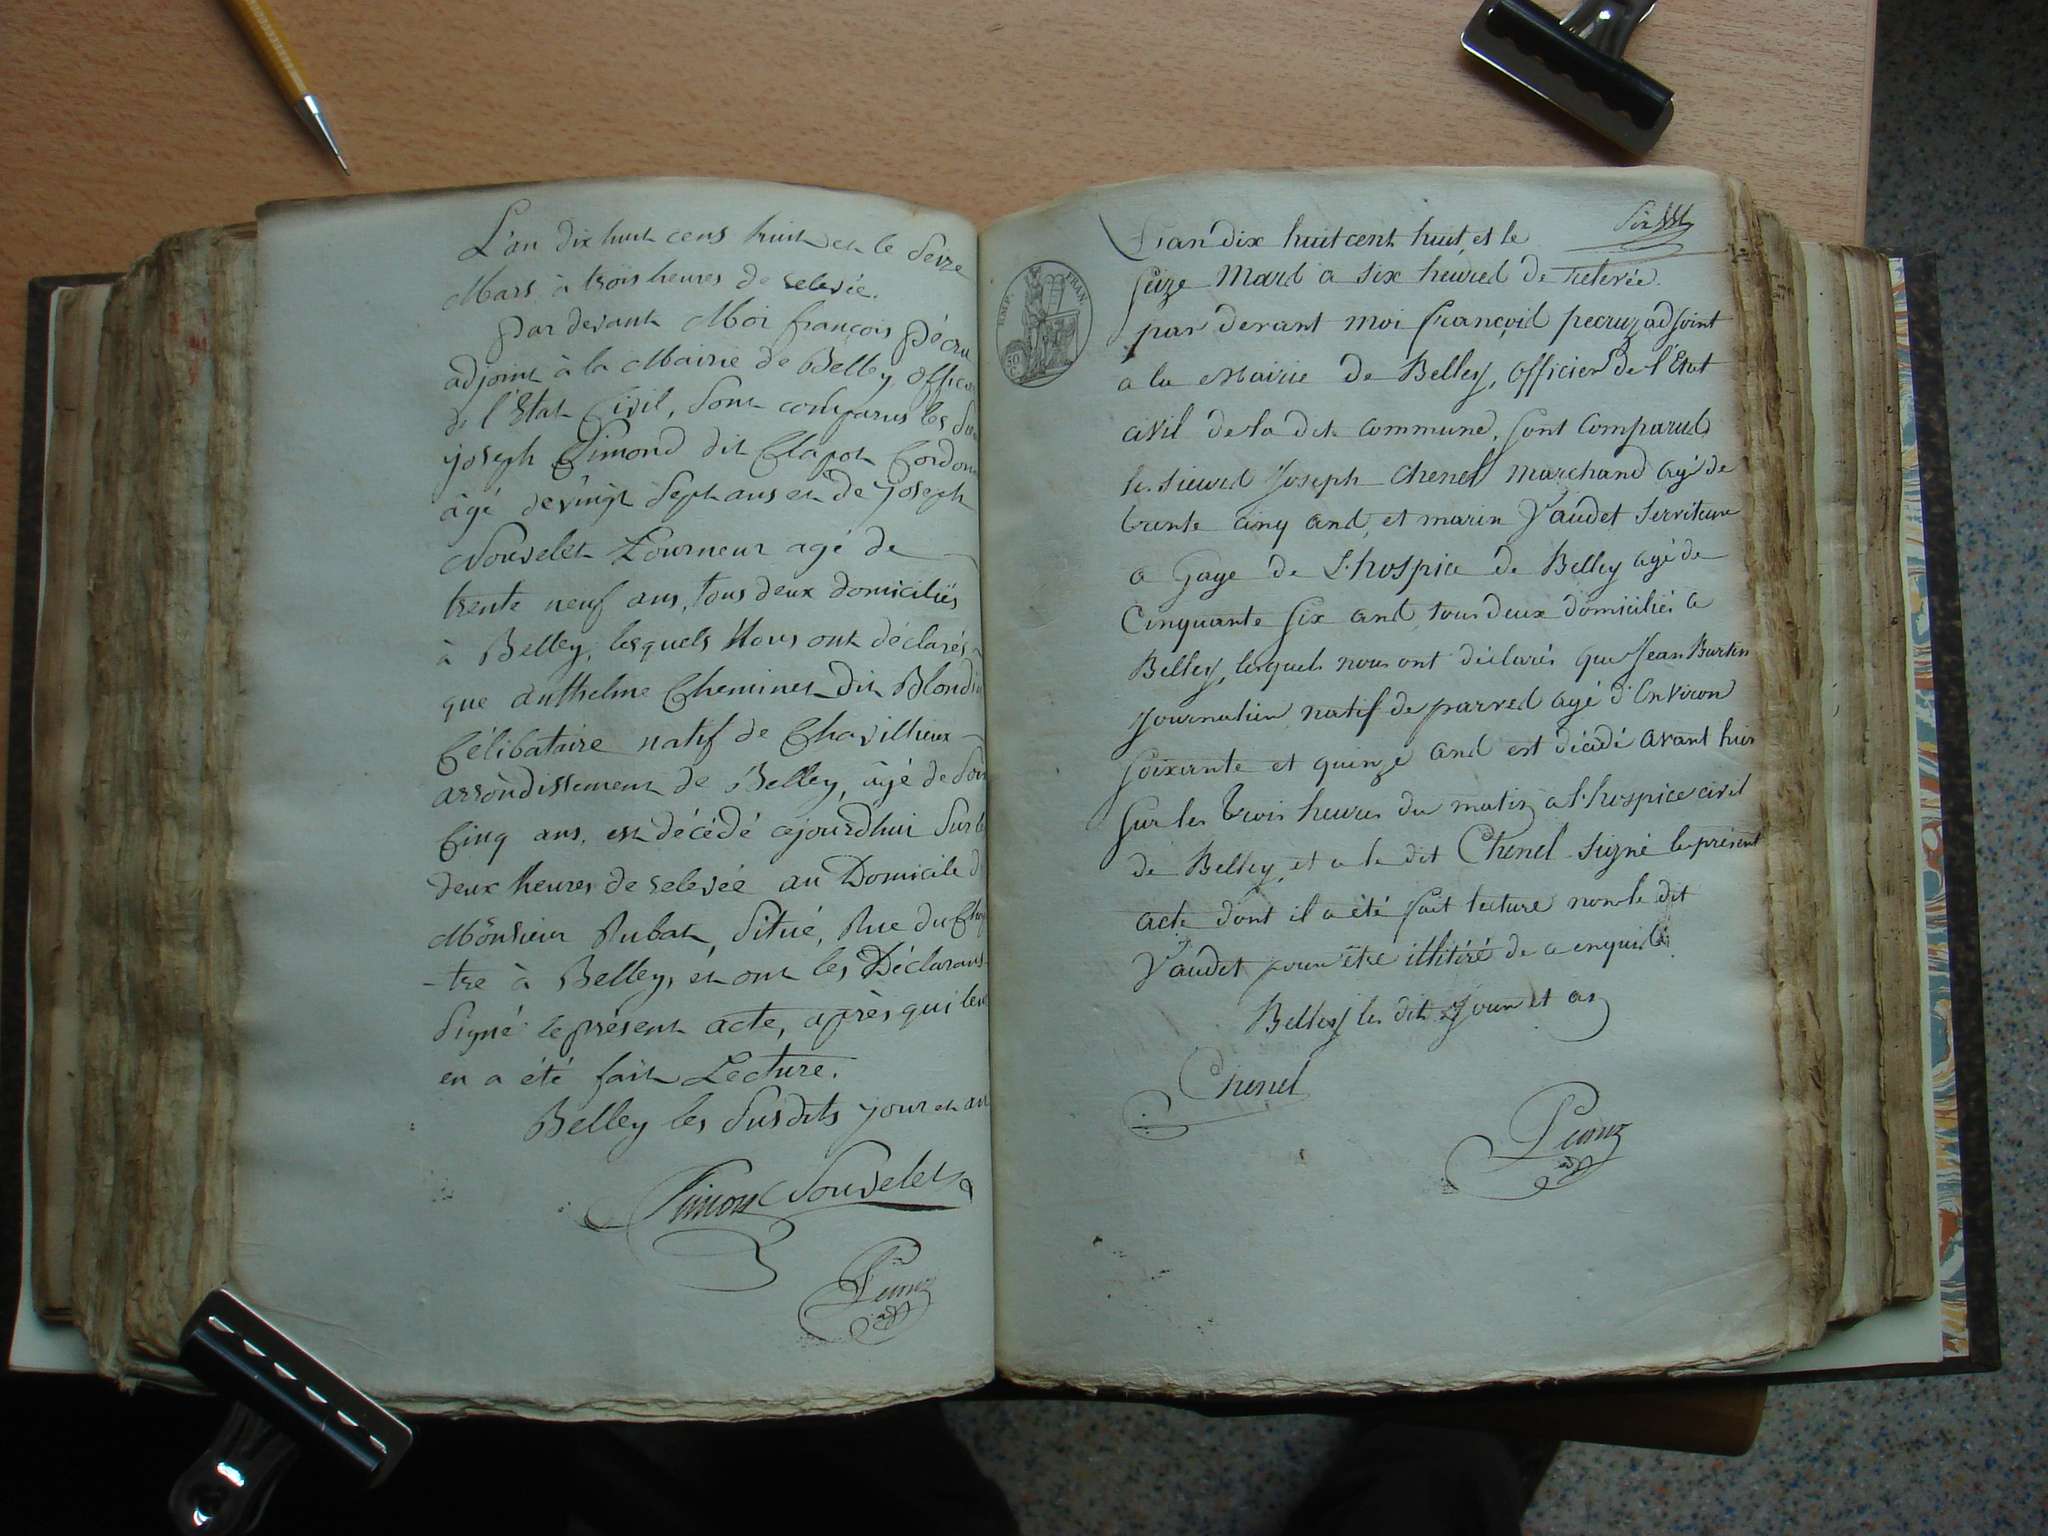 L'an dix huit cens huit et le Seize
Mars à trois heures de relevée.
Par devant Moi françois Pécru
adjoint à la Mairie de Belley offici
de l'Etat Civil, sont comparus les
joseph Simond dit Clapot Cordon
âgé de vingt sept ans et de joseph
Souvelet Tourneur agé de
trente neuf ans, tous deux domiciliés
à Belley, lesquels Nous ont déclarés
que anthelme Cheminet dit Blondin
Célibataire natif de Chavillieux
arrondissement de Belley, âgé de
Cinq ans, est décédé cejourdhui sur les
deux heures de relevée au Domicile de
Monsieur Rubat, situé, Rue du Chap
-tre à Belley, et ont les Déclarans
signé le présent acte, après qui leur
en a été fait Lecture.
Belley les susdits jour et an
Simond Souvelet
Pecruz
adjt
L'an dix huit cent huit et le
Seize Mars a six heures de Relevée.
par devant moi françois pecruz adjoint
a la Mairie de Belley, officier de l'Etat
civil de la dite commune, sont comparus
le sieurs Joseph Chenel marchand agé de
trente cinq ans, et marin Vaudet serviteur
a Gage de L'hospice de Belley agé de
Cinquante six ans tous deux domiciliés a
Belley, lesquels nous ont déclarés que Jean Burtin
Journalier natif de parves agé d'Environ
soixante et quinze ans est décédé avant hier
sur les trois heures du matin a l'hospice civil
de Belley, et a le dit Chenel signé le présent
acte dont il a été fait lecture non le dit
Vaudet pour être illitéré de ce enquis
Belley les dits Jour et an
Chenel
Pecruz
adjt
EMP. FRAN.
50
C.